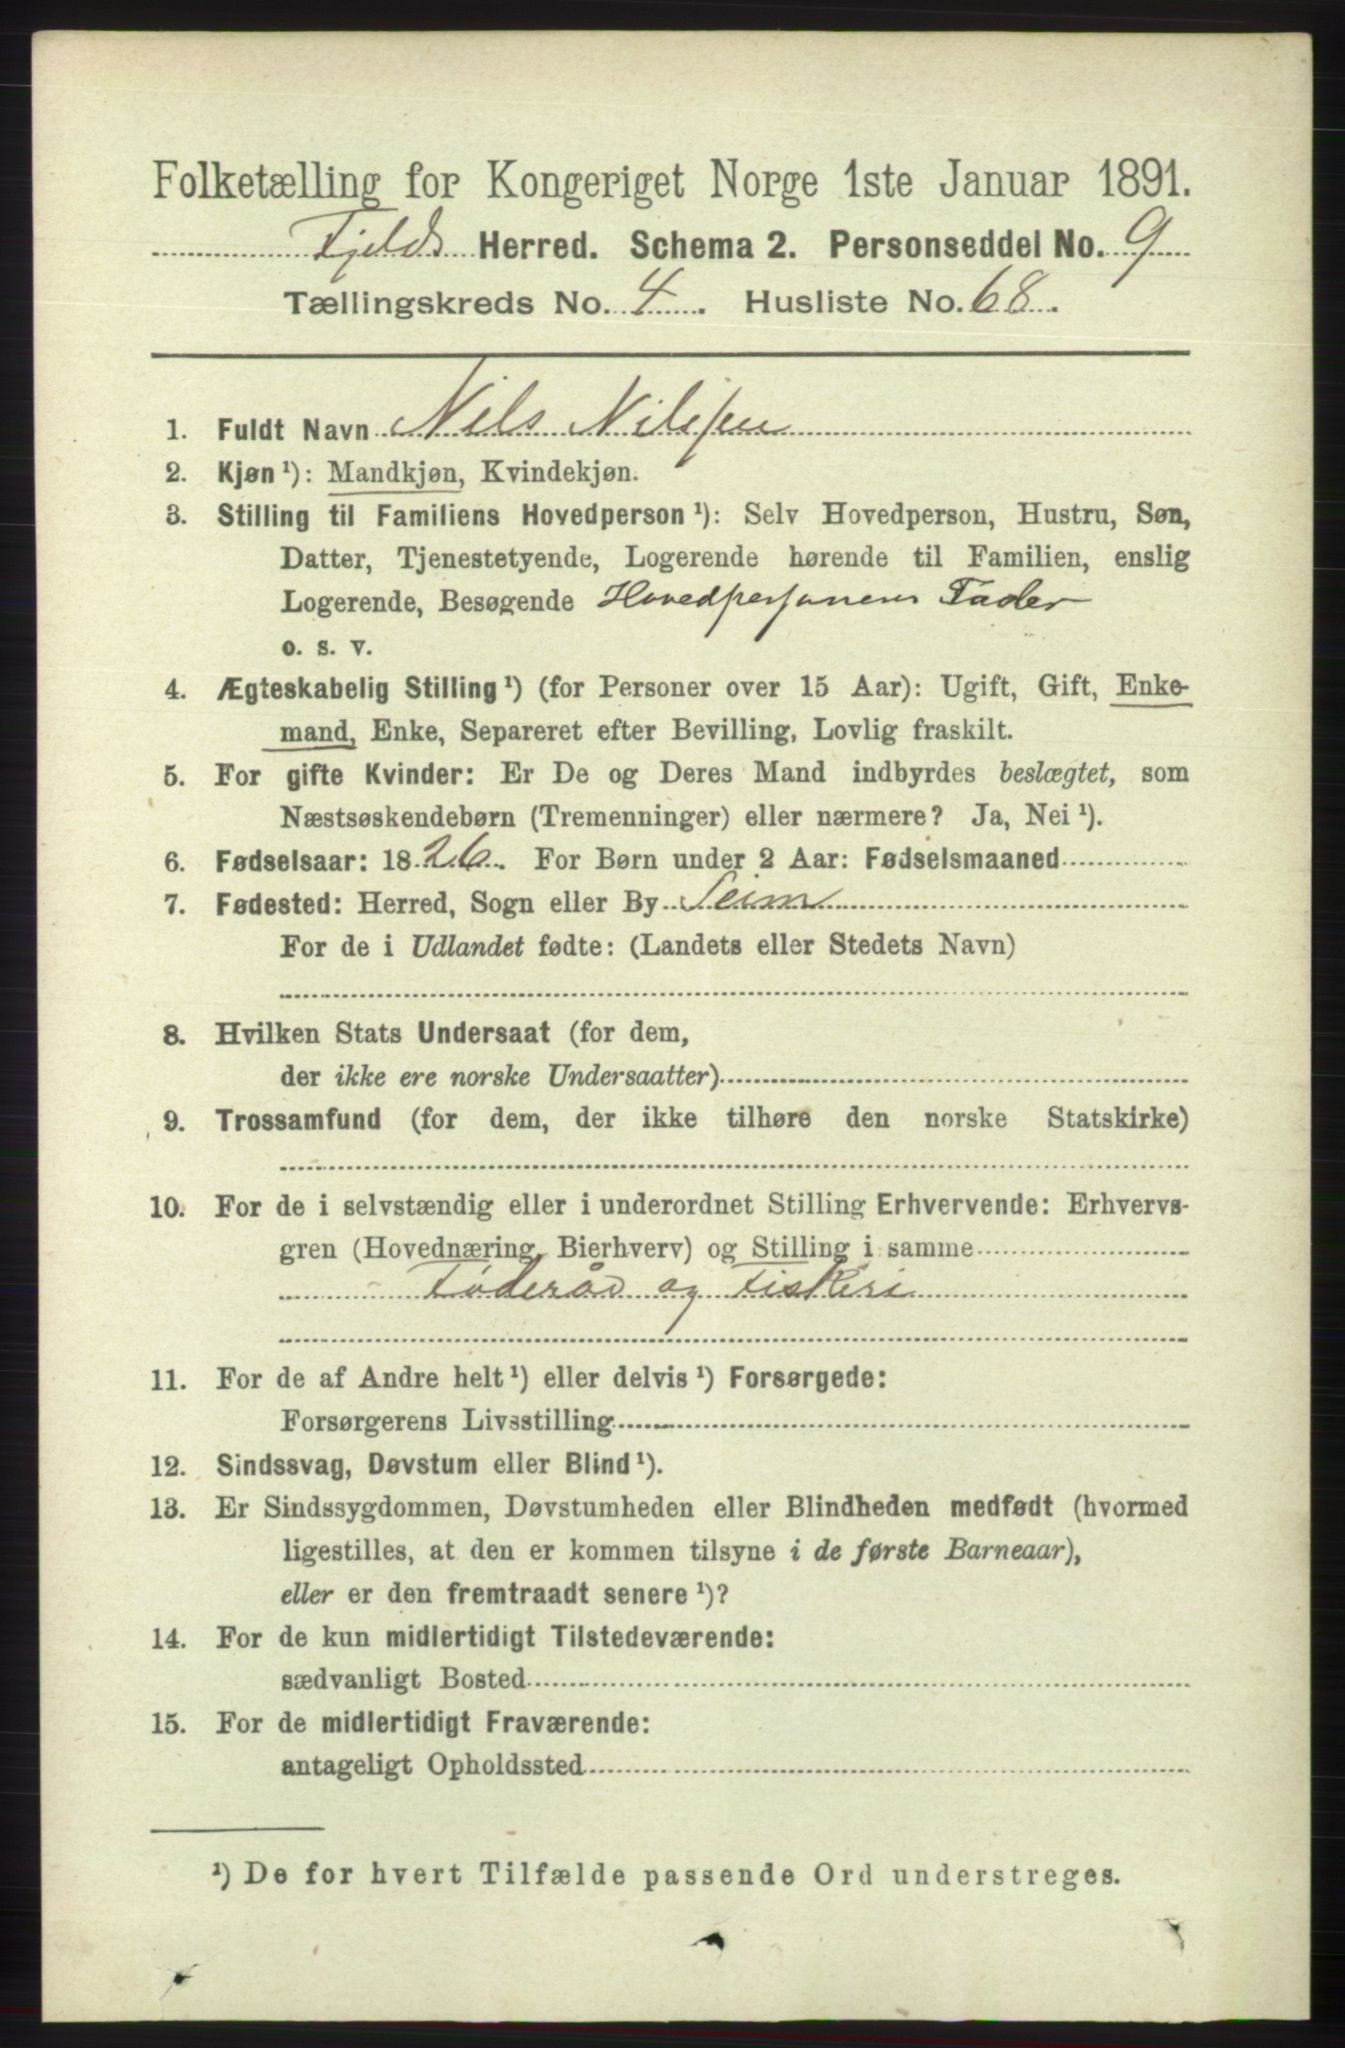 Folketælling for Kongeriget Norge 1ste Januar 1891.
Fjelds Herred. Schema 2. Personseddel No. 9
Tællingskreds No. 4. Husliste No. 68.
1. Fuldt Navn Nils Nilssen
2. Kjøn ¹): Mandkjøn, Kvindekjøn.
3. Stilling til Familiens Hovedperson ¹): Selv Hovedperson, Hustru, Søn,
Datter, Tjenestetyende, Logerende hørende til Familien, enslig
Logerende, Besøgende Hovedpersonens Fader
o. s. v.
4. Ægteskabelig Stilling ¹) (for Personer over 15 Aar): Ugift, Gift, Enke-
mand, Enke, Separeret efter Bevilling, Lovlig fraskilt.
5. For gifte Kvinder: Er De og Deres Mand indbyrdes beslægtet, som
Næstsøskendebørn (Tremenninger) eller nærmere? Ja, Nei ¹).
6. Fødselsaar: 1826. For Børn under 2 Aar: Fødselsmaaned
7. Fødested: Herred, Sogn eller By Seim
For de i Udlandet fødte: (Landets eller Stedets Navn)
8. Hvilken Stats Undersaat (for dem,
der ikke ere norske Undersaatter)
9. Trossamfund (for dem, der ikke tilhøre den norske Statskirke)
10. For de i selvstændig eller i underordnet Stilling Erhvervende: Erhvervs-
gren (Hovednæring, Bierhverv) og Stilling i samme
Føderåd og Fiskeri
11. For de af Andre helt ¹) eller delvis ¹) Forsørgede:
Forsørgerens Livsstilling
12. Sindssvag, Døvstum eller Blind ¹).
13. Er Sindssygdommen, Døvstumheden eller Blindheden medfødt (hvormed
ligestilles, at den er kommen tilsyne i de første Barneaar),
eller er den fremtraadt senere ¹)?
14. For de kun midlertidigt Tilstedeværende:
sædvanligt Bosted
15. For de midlertidigt Fraværende:
antageligt Opholdssted
¹) De for hvert Tilfælde passende Ord understreges.